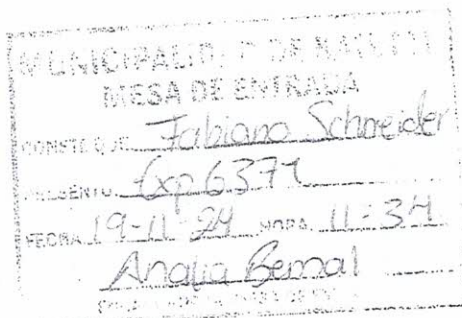 MUNICIPALIDAD DE
MESA DE ENTRADA
CONSTE QUE Fabiano Schneider
PRESENTO Exp 6371
FECHA 19-11-24 HORA 11:34
Analia Bernal